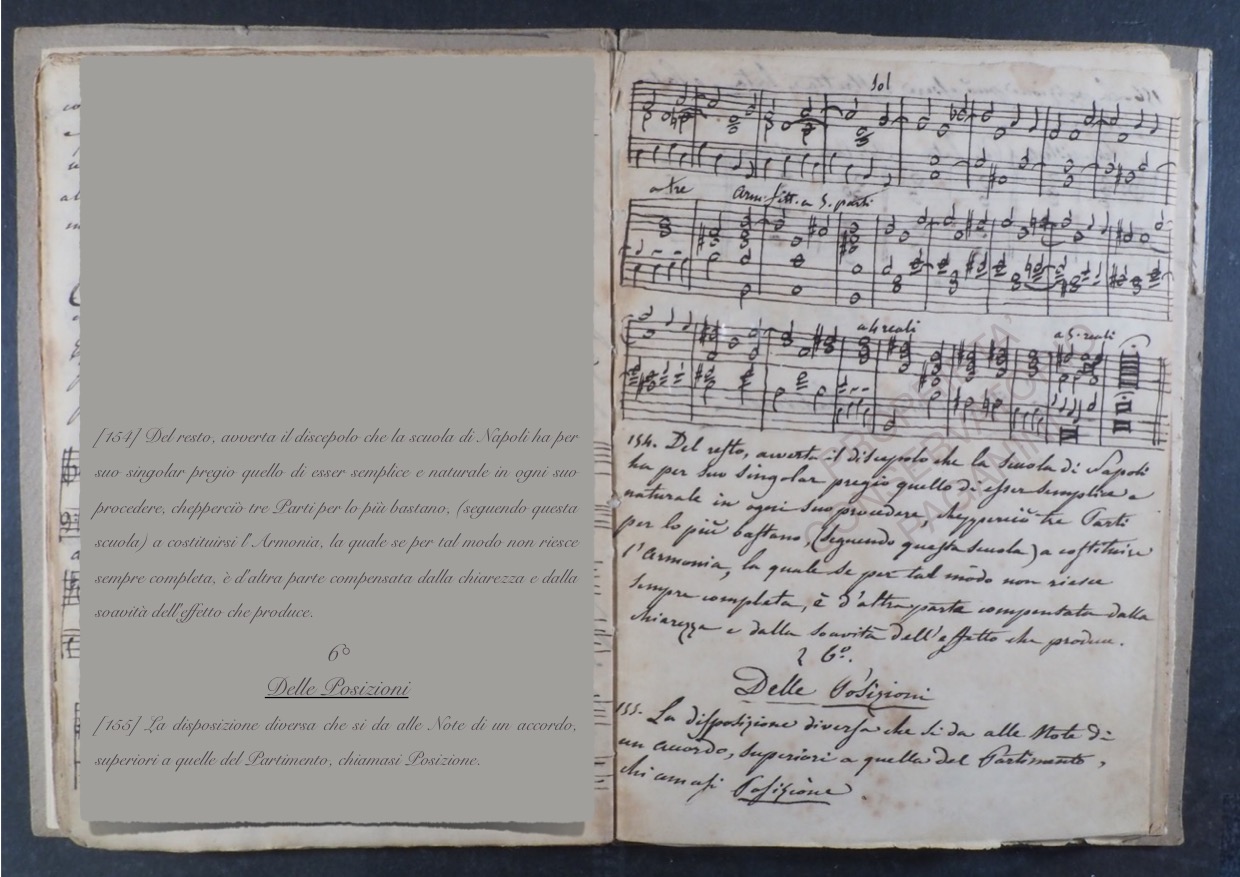 [154] Del resto, avverta il discepolo che la scuola di Napoli ha per
suo singolar pregio quello di esser semplice e naturale in ogni suo
procedere, chepperciò tre Parti per lo più bastano, (seguendo questa
scuola) a costituirsi l'Armonia, la quale se per tal modo non riesce
sempre completa, è d'altra parte compensata dalla chiarezza e dalla
soavità dell'effetto che produce.
6°
Delle Posizioni
[155] La disposizione diversa che si da alle Note di un accordo,
superiori a quelle del Partimento, chiamasi Posizione.
Sol
a tre
Arm. fitt. a 5. parti
a 4 reali
a 5. reali
PROPRIETA'
CONSERVATORIO
PAGANINI
154. Del resto, avverta il discepolo che la scuola di Napoli
ha per suo singolar pregio quello di esser semplice e
naturale in ogni suo procedere chepperciò tre Parti
per lo più bastano, (seguendo questa scuola) a costituire
l'Armonia, la quale se per tal modo non riesce
sempre completa, è d'altra parte compensata dalla
chiarezza e dalla soavità dell'effetto che produce.
§ 6°.
Delle Posizioni
155. La disposizione diversa che si da alle Note di
un accordo, superiori a quelle del Partimento,
chiamasi Posizione